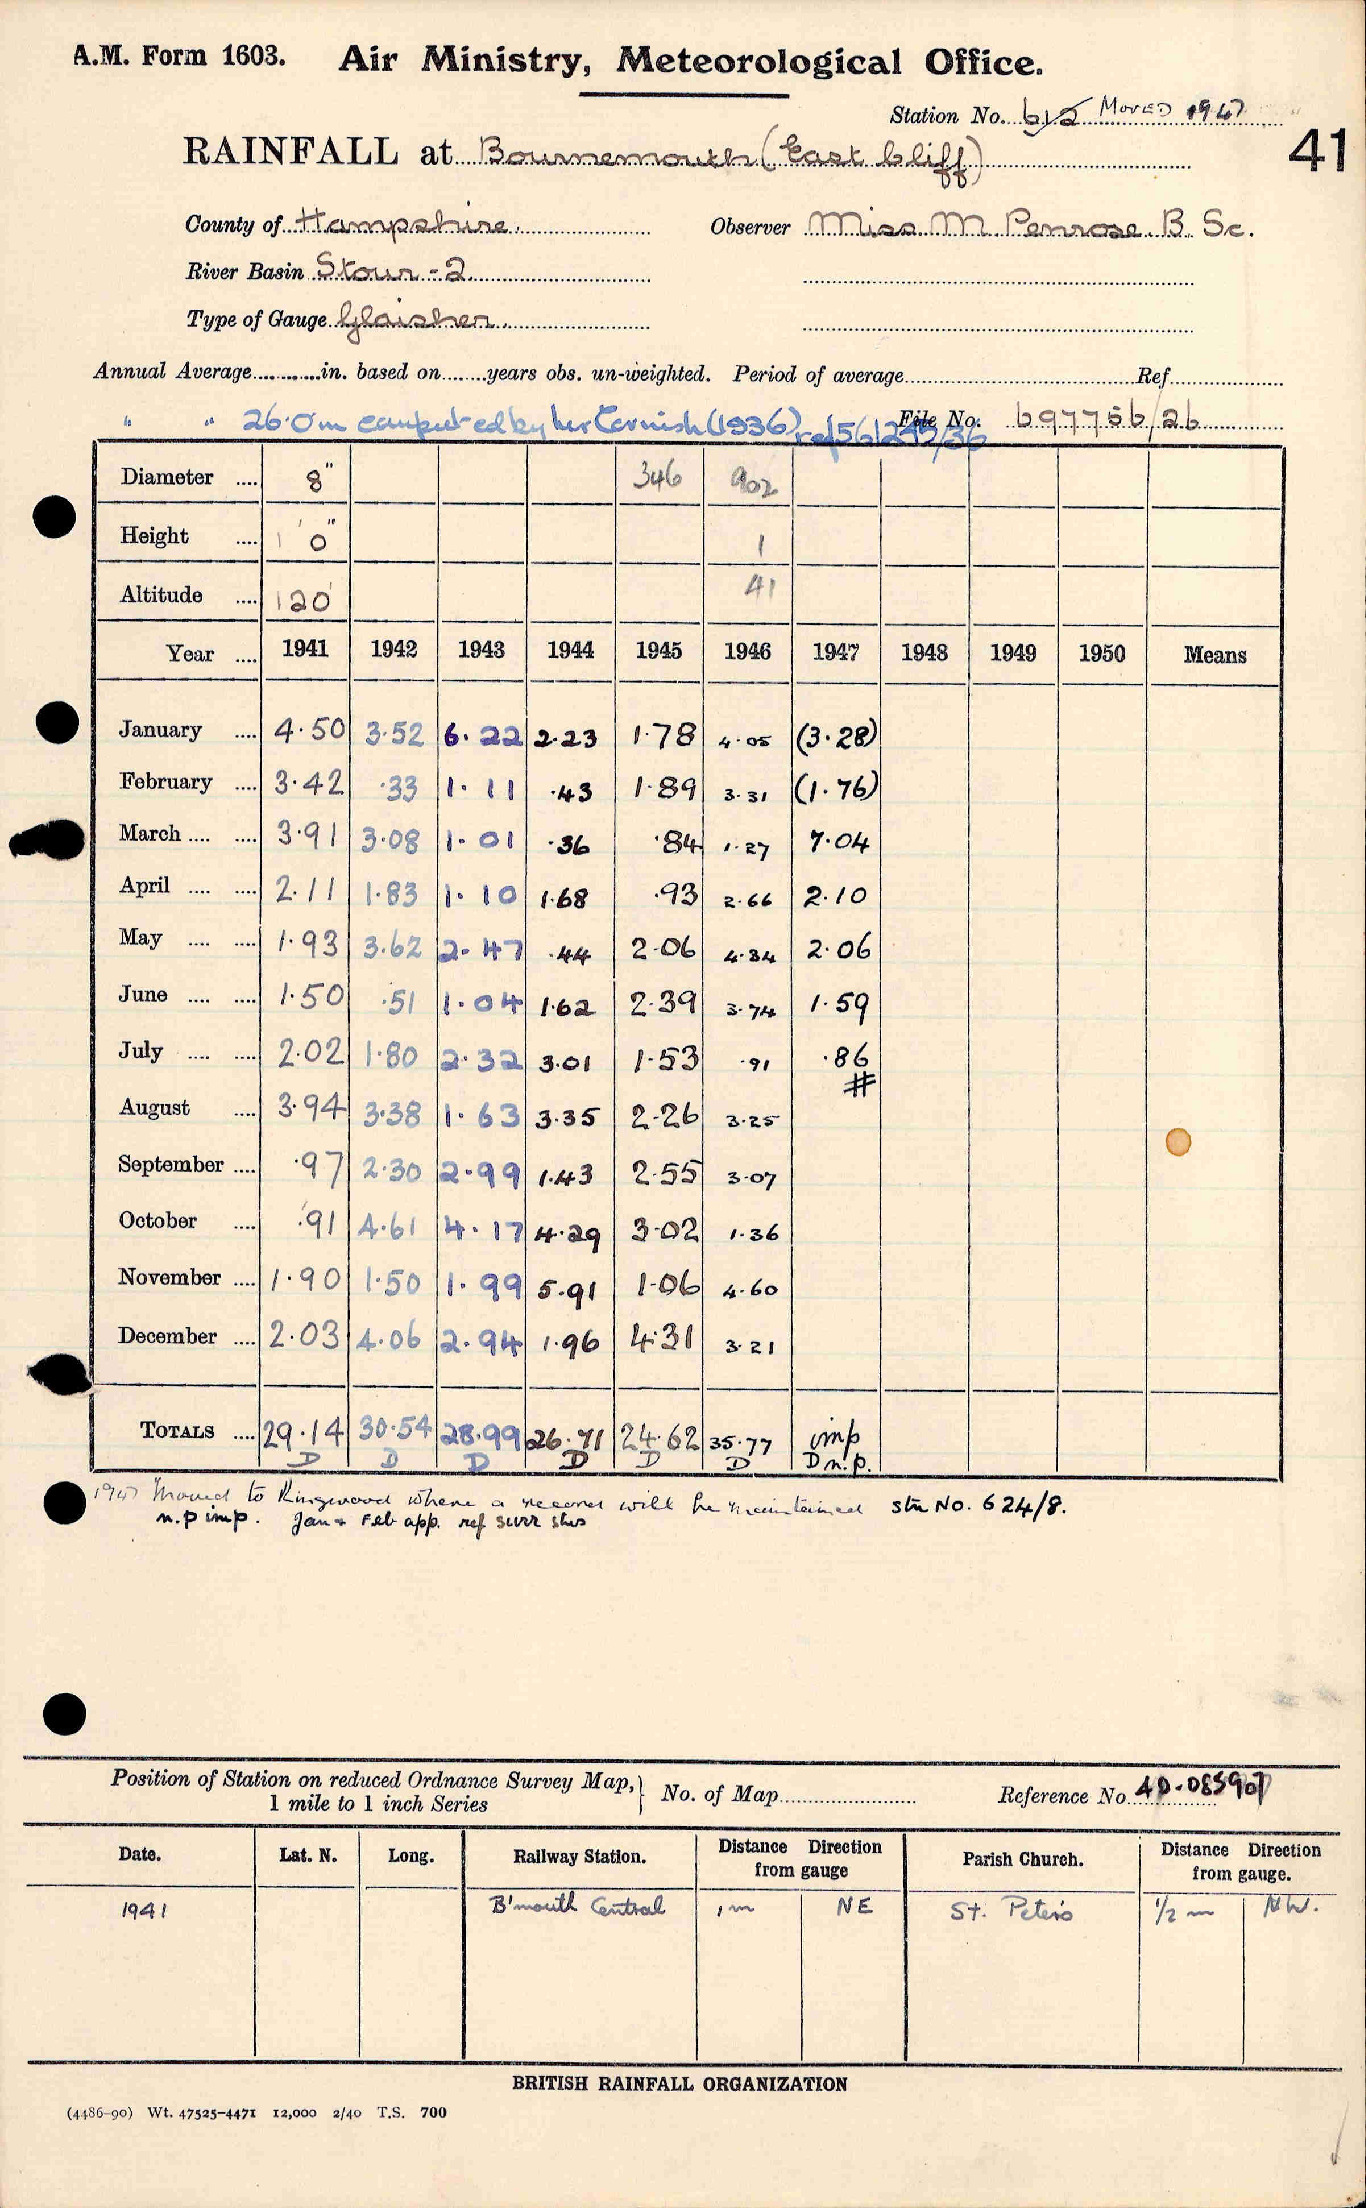 A.M. Form 1603. Air Ministry, Meteorological Office.
Station No. 612 MOVED 1947
41
RAINFALL at Bournemouth (East Cliff)
County of Hampshire. Observer Miss M Penrose. B. Sc.
River Basin Stour-2
Type of Gauge Glaisher.
Annual Average............in. based on........years obs. un-weighted. Period of average.............Ref.............
" " 26.0 in computed by ref 561295/36
File No. 697756/26
Diameter .... 8" 346 902
Height .... 1' 0" 1
Altitude .... 120' 41
Year .... 1941 1942 1943 1944 1945 1946 1947 1948 1949 1950 Means
January .... 4.50 3.52 6.22 2.23 1.78 4.05 (3.28)
February .... 3.42 .33 1.11 .43 1.89 3.31 (1.76)
March .... .... 3.91 3.08 1.01 .36 .84 1.27 7.04
April .... .... 2.11 1.83 1.10 1.68 .93 2.66 2.10
May .... .... 1.93 3.62 2.47 .44 2.06 4.34 2.06
June .... .... 1.50 .51 1.04 1.62 2.39 3.74 1.59
July .... .... 2.02 1.80 2.32 3.01 1.53 .91 .86
#
August .... 3.94 3.38 1.63 3.35 2.26 3.25
September .... .97 2.30 2.99 1.43 2.55 3.07
October .... .91 4.61 4.17 4.29 3.02 1.36
November .... 1.90 1.50 1.99 5.91 1.06 4.60
December .... 2.03 4.06 2.94 1.96 4.31 3.21
TOTALS .... 29.14 30.54 28.99 26.71 24.62 35.77 imp
D D D D D D D n.p.
1947 Moved to Ringwood where a record will be maintained stn No. 624/8.
n.p imp. Jan + Feb app. ref surr stns
Position of Station on reduced Ordnance Survey Map, } No. of Map............ Reference No. 40.085907
1 mile to 1 inch Series
Date. Lat. N. Long. Railway Station. Distance Direction from gauge Parish Church. Distance Direction from gauge.
1941 B'mouth Central 1m NE St. Peter's 1/2 m NW.
BRITISH RAINFALL ORGANIZATION
(4486-90) Wt. 47525-4471 12,000 2/40 T.S. 700